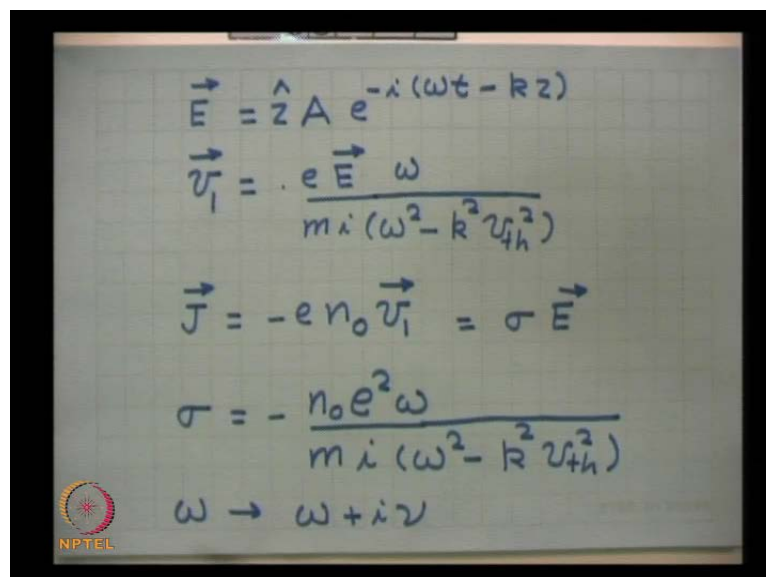 E⃗ = ẑ A e^{-i(ωt - kz)}
v⃗₁ = . e E⃗ ω / m i (ω² - k² v_th²)
J⃗ = - e n₀ v⃗₁ = σ E⃗
σ = - n₀ e² ω / m i (ω² - k² v_th²)
ω → ω + iν
NPTEL